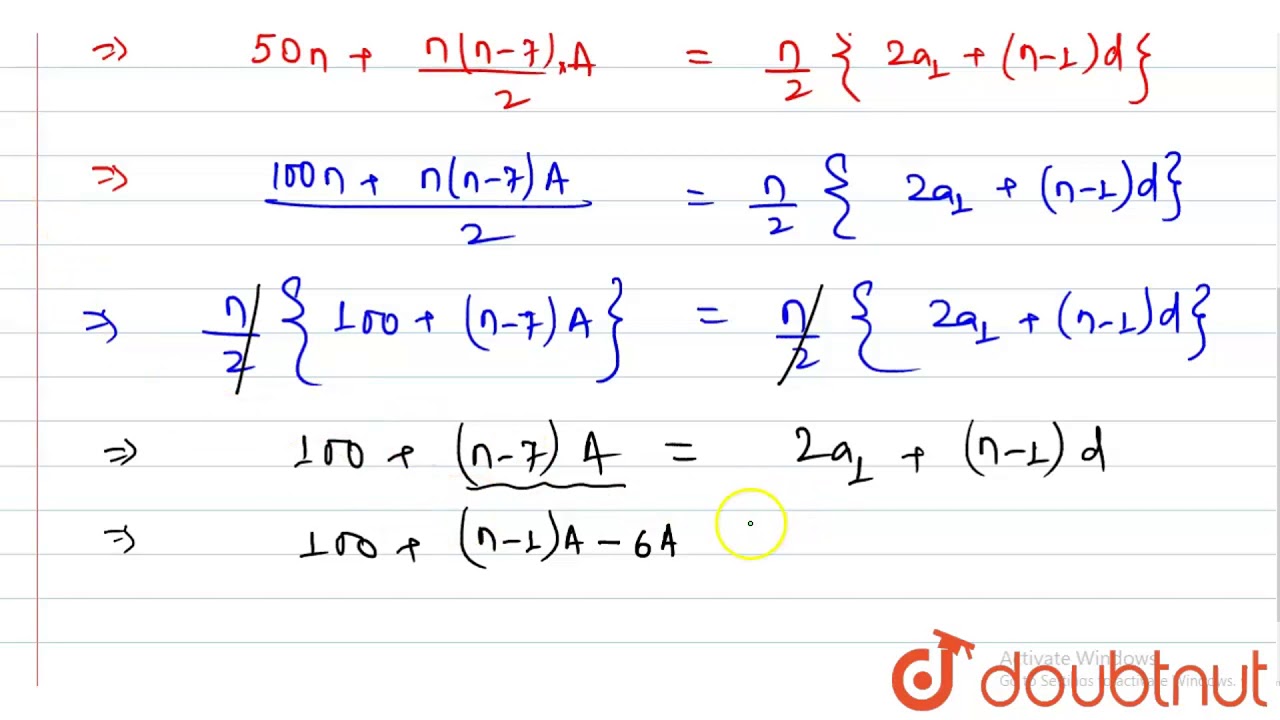 ⇒ 50n + n(n-7)/2 × A = n/2 { 2a₁ + (n-1)d}
⇒ 100n + n(n-7)A / 2 = n/2 { 2a₁ + (n-1)d}
⇒ n/2 { 100 + (n-7)A } = n/2 { 2a₁ + (n-1)d}
⇒ 100 + (n-7) A = 2a₁ + (n-1) d
⇒ 100 + (n-1)A - 6A
Activate Windows
Go to Settings to activate Windows.
doubtnut